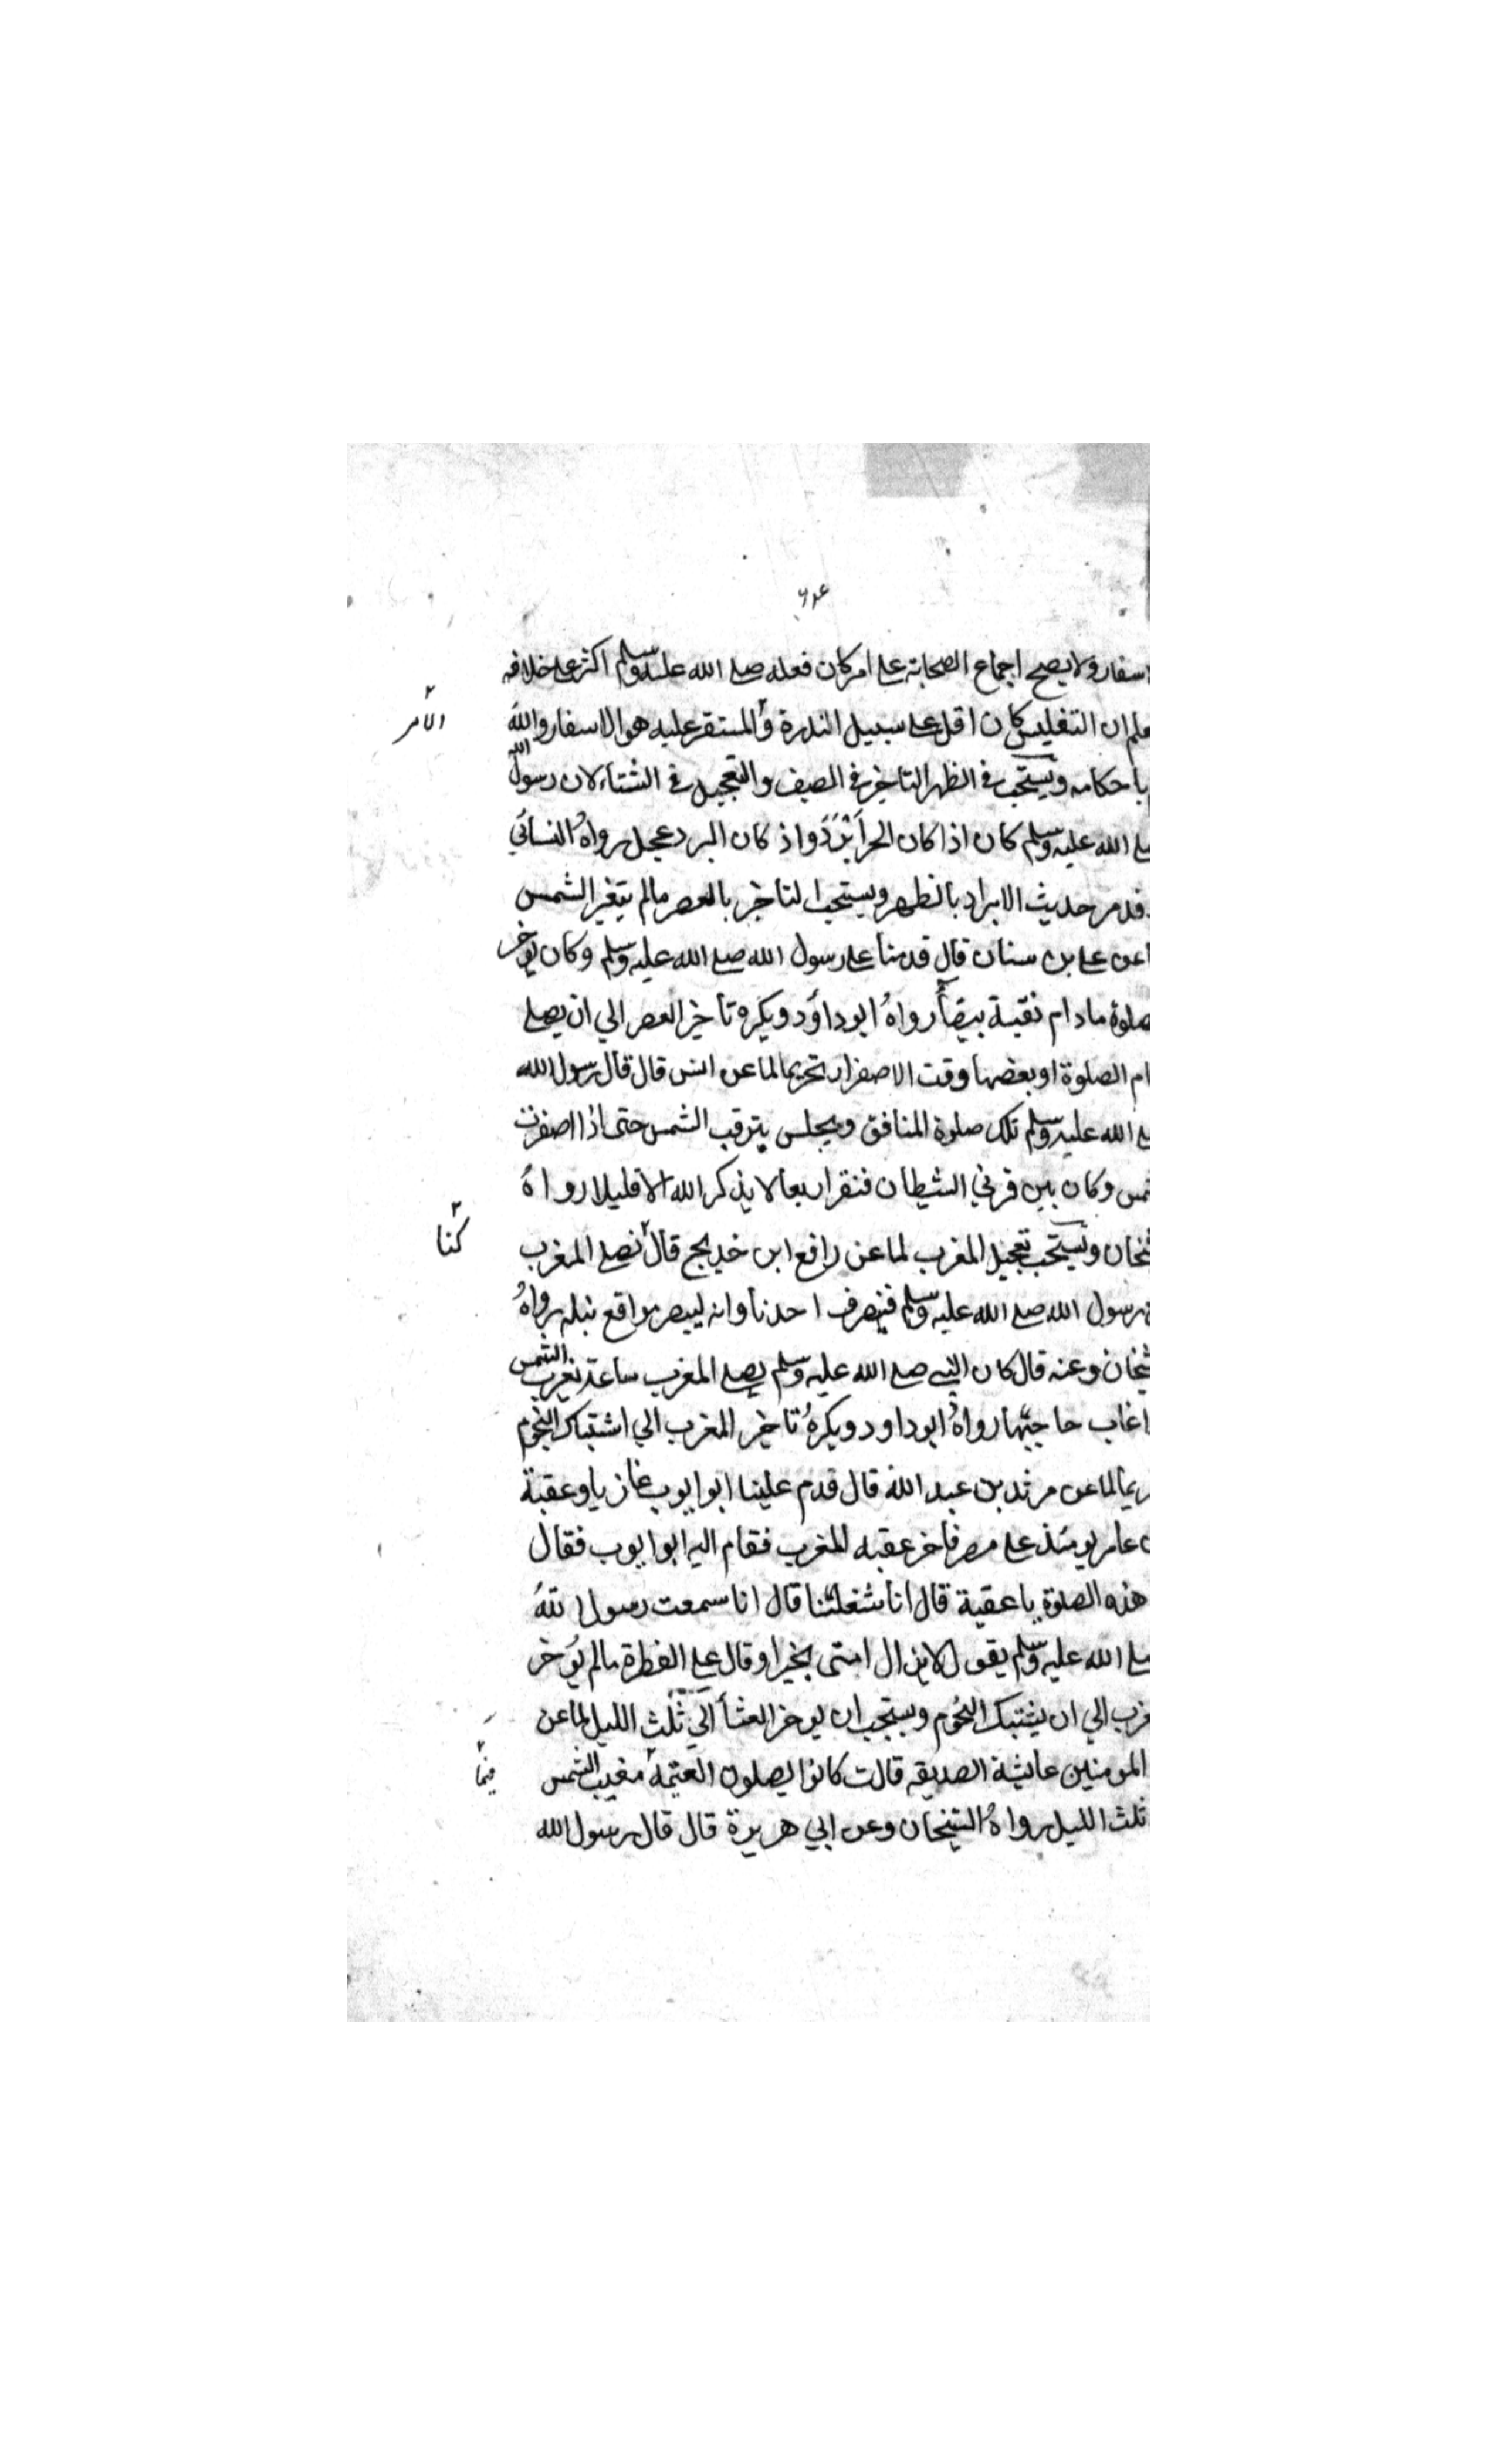 ۶۲۴
اسفار ولا يصح اجماع الصحابة على امر كان فعله صلى الله عليه وسلم اكثر على خلافه
ان التغليس كان اقل على سبيل الندرة والمستقر عليه هو الاسفار والله
الأمر
باحكامه ويستحب في الظهر التاخير في الصيف والتعجيل في الشتاء لان رسول الله
الله عليه وسلم كان اذا كان الحر اَبْرَدَ واذ كان البرد عجل رواه النسائي
قد مر حديث الابراد بالظهر ويستحب التاخير بالعصر مالم يتغير الشمس
عن على بن سنان قال قدمنا على رسول الله صلى الله عليه وسلم وكان يوخر
صلوة مادام نقية بيضأ رواهُ ابو داؤد ويكره تأخير العصر الي ان يصلى
ام الصلوة او بعضها وقت الاصفرار تحريما لما عن انس قال قال رسول الله
الله عليه وسلم تلك صلوة المنافق ويجلس يترقب الشمس حتى اذا اصفرت
وكان بين قرني الشيطان فنقر اربعا لا يذكر الله الا قليلا رواهُ
ويستحب تعجيل المغرب لما عن رافع ابن خديج قال نصلى المغرب
كنا
رسول الله صلى الله عليه وسلم فينصرف احدنا وانه ليبصر مواقع نبله رواهُ
وعنه قال كان النبي صلى الله عليه وسلم يصلى المغرب ساعة تغرب الشمس
اغاب حاجبها رواهُ ابو داود ويكرهُ تاخير المغرب الي اشتباك النجوم
لما عن مرثد بن عبد الله قال قدم علينا ابو ايوب غازيا وعقبة
عامر يومئذ على مصر فاخر عقبه المغرب فقام اليه ابو ايوب فقال
هذه الصلوة يا عقبة قال انا شغلنا قال انا سمعت رسول الله
الله عليه وسلم يقول لايزال امتى بخير او قال على الفطرة مالم يؤخر
الي ان يشتبك النجوم ويستحب ان يوخر العشأ الي ثُلث الليل لما عن
المومنين عائشة الصديقه قالت كانوا يصلون العتمة مغيب الشمس
فيما
ثلث الليل رواهُ الشيخان وعن ابي هريرة قال قال رسول الله